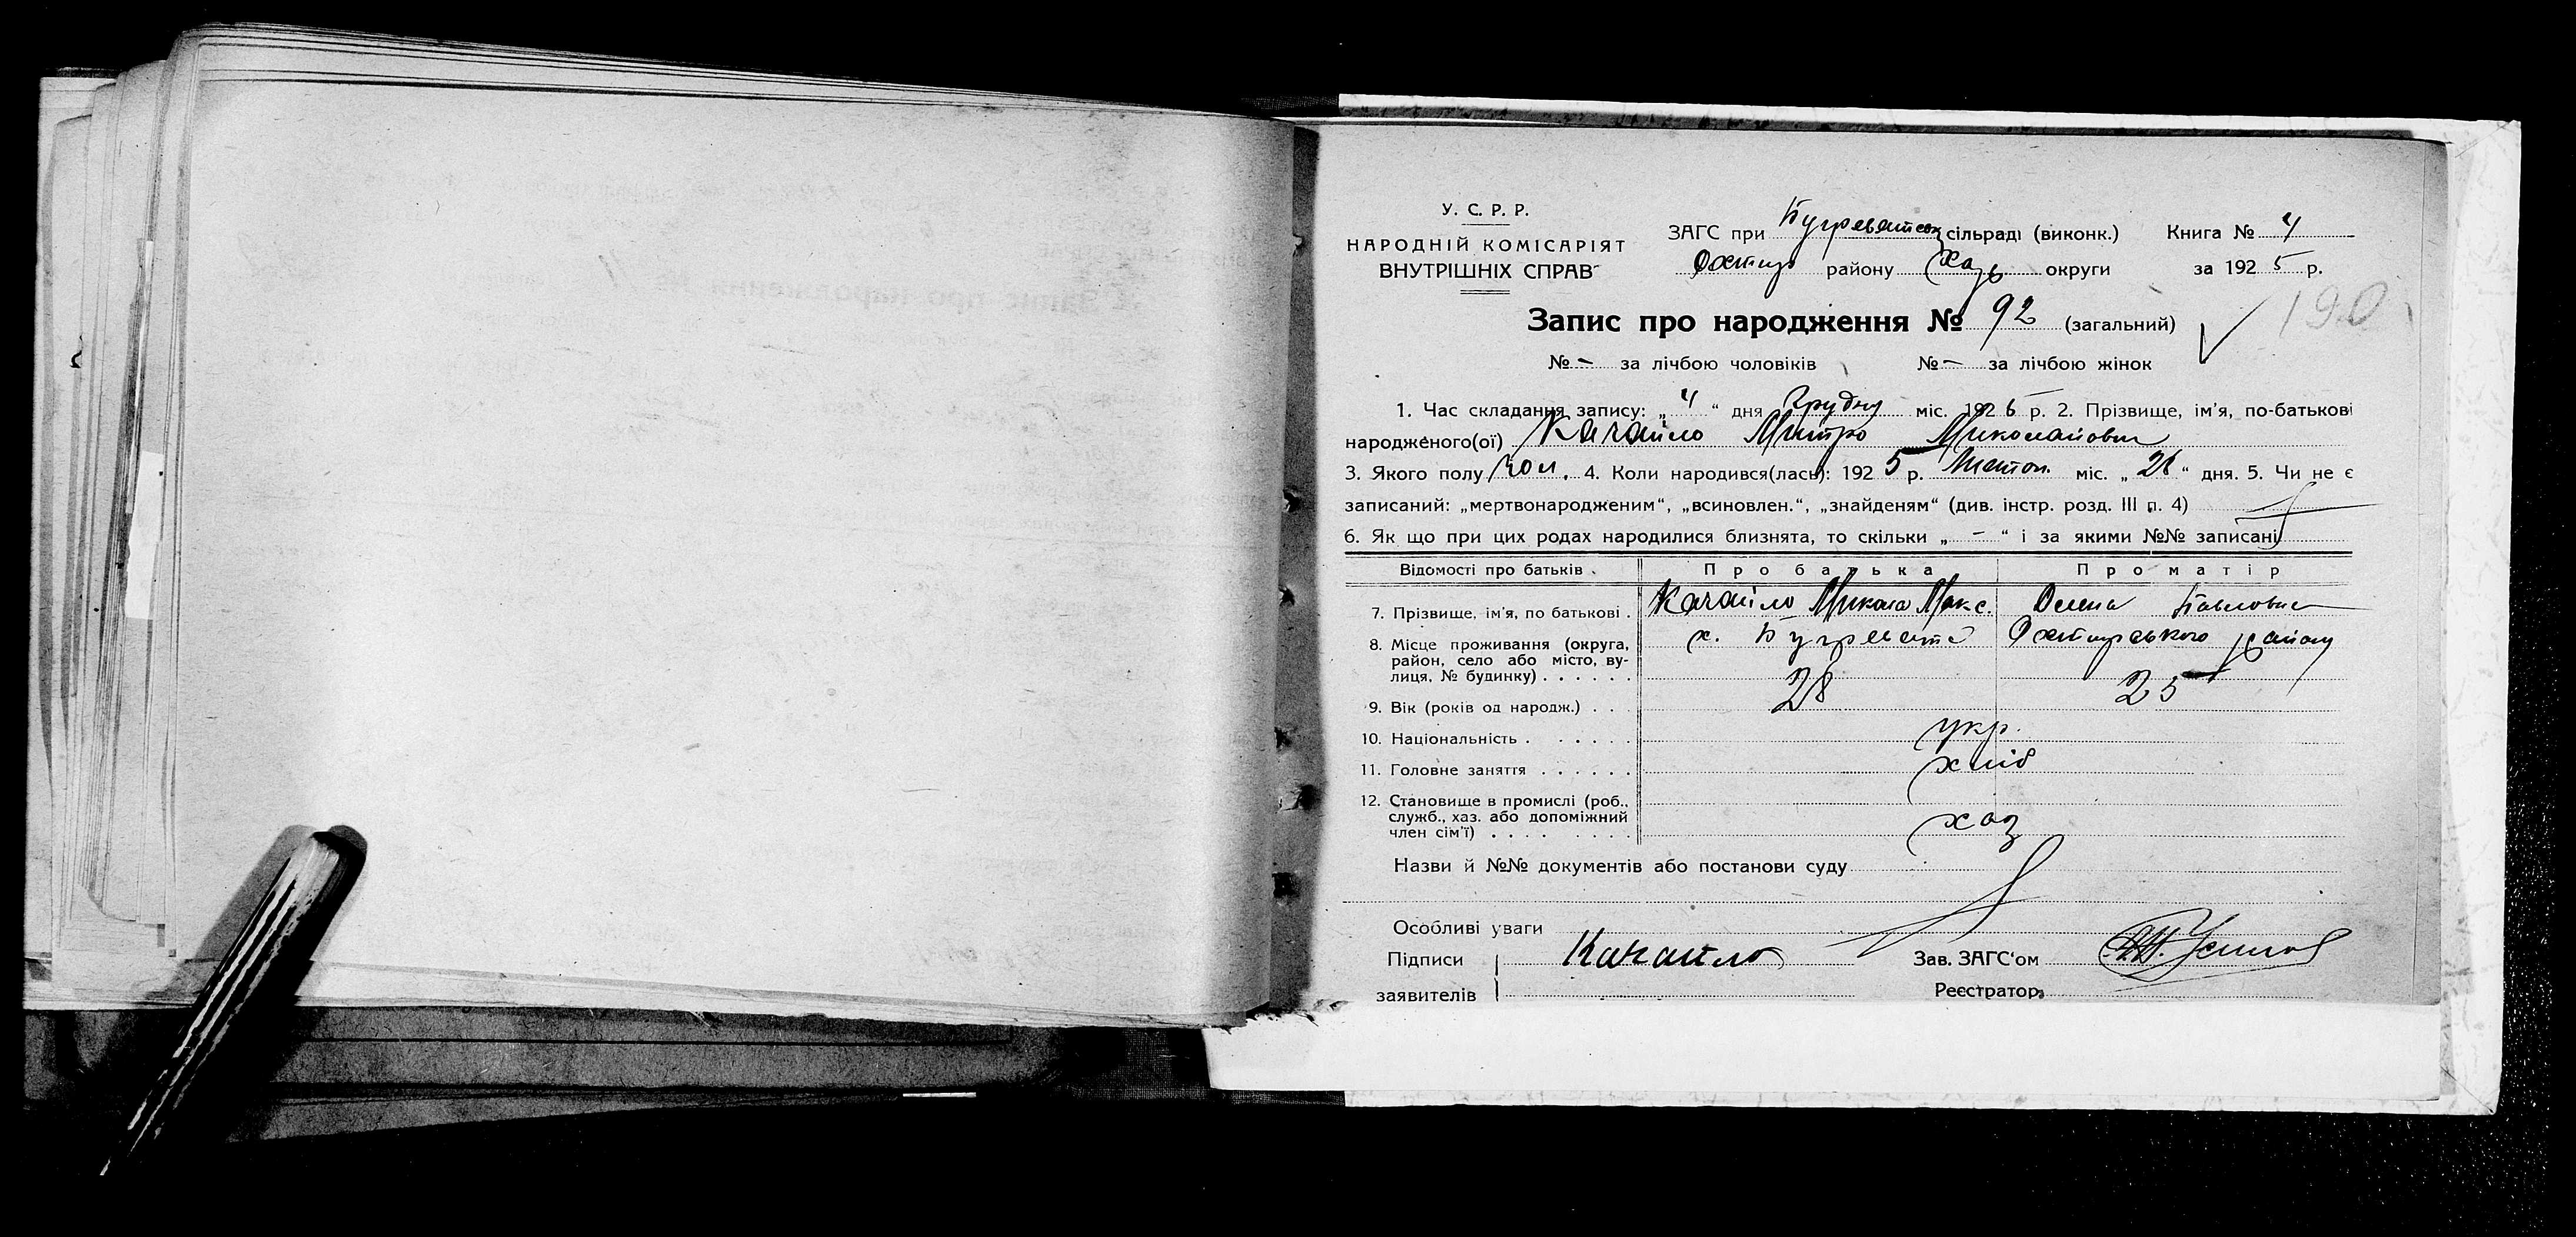 У. С. Р. Р.
НАРОДНІЙ КОМІСАРІЯТ
ВНУТРІШНІХ СПРАВ
ЗАГС при Бугреватск сільраді (виконк.) Книга № 4
Охтир району Харь округи за 1925 р.
190
Запис про народження № 92 (загальний)
№ - за лічбою чоловіків № - за лічбою жінок
1. Час складання запису: „4“ дня Грудня міс. 1925 р. 2. Прізвище, ім'я, по-батькові
народженого(ої) Качайло Митро Миколайович
3. Якого полу чол. 4. Коли народився(лась): 1925 р. Листоп. міс. „28“ дня. 5. Чи не є
записаний: „мертвонародженим“, „всиновлен.“, „знайденям“ (див. інстр. розд. III п. 4)
6. Як що при цих родах народилися близнята, то скільки „ - “ і за якими №№ записані
Відомості про батьків Про батька Про матір
7. Прізвище, ім'я, по батькові . Качайло Микола Макс. Олена Павловна
8. Місце проживання (округа, х. Бугревате Охтирського району
район, село або місто, ву-
лиця, № будинку) . . . . . .
9. Вік (років од народж.) . . . 28 25
10. Національність . . . . . . укр.
11. Головне заняття . . . . . . хліб
12. Становище в промислі (роб.,
служб., хаз. або допоміжний
член сім'ї) . . . . . . . . хаз
Назви й №№ документів або постанови суду
Особливі уваги
Підписи Качайло Зав. ЗАГС'ом
заявителів Реєстратор